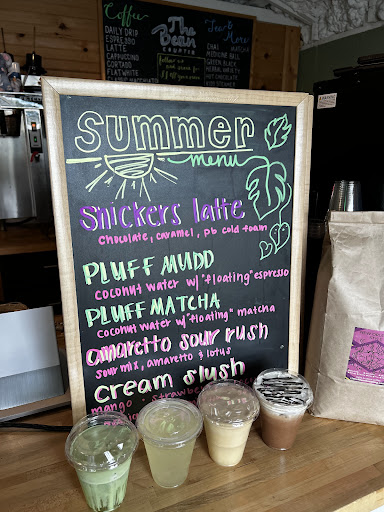 Coffee
DAILY DRIP
ESPRESSO
LATTE
CAPPUCCINO
CORTADO
FLAT WHITE
The
Bean
COUNTER
follow us
Tea &
More
CHAI MATCHA
GREEN BLACK
HOT CHOCOLATE
summer
menu
Snickers latte
chocolate, caramel, pb cold foam
PLUFF MUDD
coconut water w/ "floating" espresso
PLUFF MATCHA
coconut water w/ "floating" matcha
amaretto sour rush
sour mix, amaretto & lotus
cream slush
mango